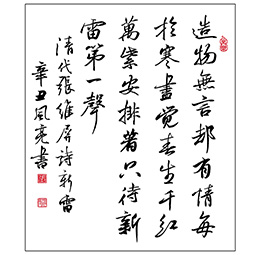 造物無言却有情每
於寒盡覺春生千紅
萬紫安排著只待新
雷第一聲
清代張維屏詩新雷
辛丑風亮書